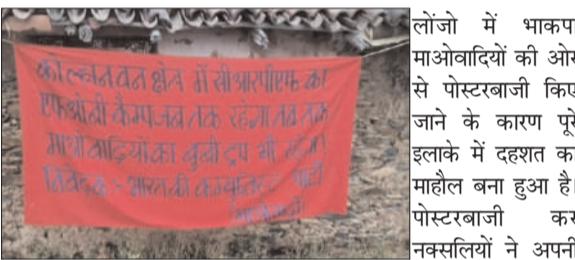 कोल्हान वन क्षेत्र में सीआरपीएफ का
एफओबी कैम्प जब तक रहेगा तब तक
माओवादियों का बुबी ट्रप भी रहेगा।
निवेदक :- भारत की कम्युनिस्ट पार्टी
लोंजो में भाकपा
माओवादियों की ओर
से पोस्टरबाजी किए
जाने के कारण पूरे
इलाके में दहशत का
माहौल बना हुआ है।
पोस्टरबाजी कर
नक्सलियों ने अपनी